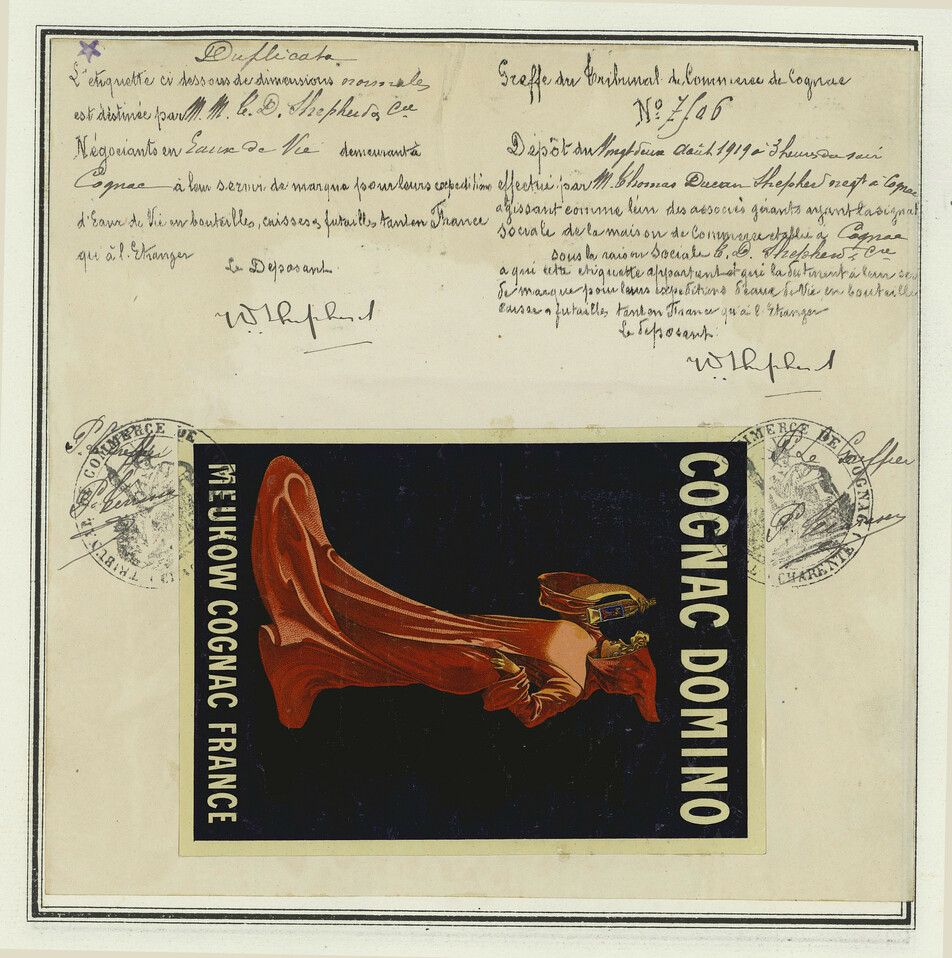 Duplicata
L'etiquette ci dessous de dimensions normales
est déstinée par M. M. C. D. Shepherd & Cie
Négociants en Eaux de Vie demeurant à
Cognac à leur servir de marque pour leurs expéditions
d'Eaux de Vie en bouteilles, caisses & futailles tant en France
qu'à l'Etranger
Le Deposant
W Shepherd
Greffe du Tribunal de Commerce de Cognac
Nº
Dépôt du Vingt deux Août 1919 à 3 heures du soir
effectué par M. Thomas Ducan Shepherd negt à Cognac
agissant comme l'un des associés gérants ayant la signat
sociale de la maison de Commerce etablie à Cognac
sous la raison sociale C. D. Shepherd & Cie
à qui cette etiquette appartient et qui la destinent à leur
de marque pour leurs expeditions d'eaux de Vie en bouteilles
caisses & futailles tant en France qu'à l'Etranger
Le déposant
W Shepherd
COMMERCE DE
TRIBUNAL
P. Le Greffier
COMMERCE DE COGNAC
CHARENTE
P. Le Greffier
COGNAC DOMINO
MEUKOW COGNAC FRANCE